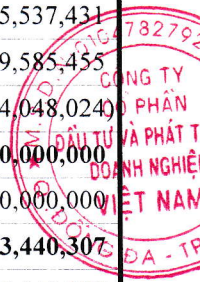 5,537,431
9,585,455
4,048,024
0,000,000
0,000,000
3,440,307
CÔNG TY
CỔ PHẦN
ĐẦU TƯ VÀ PHÁT T
DOANH NGHIỆ
VIỆT NAM